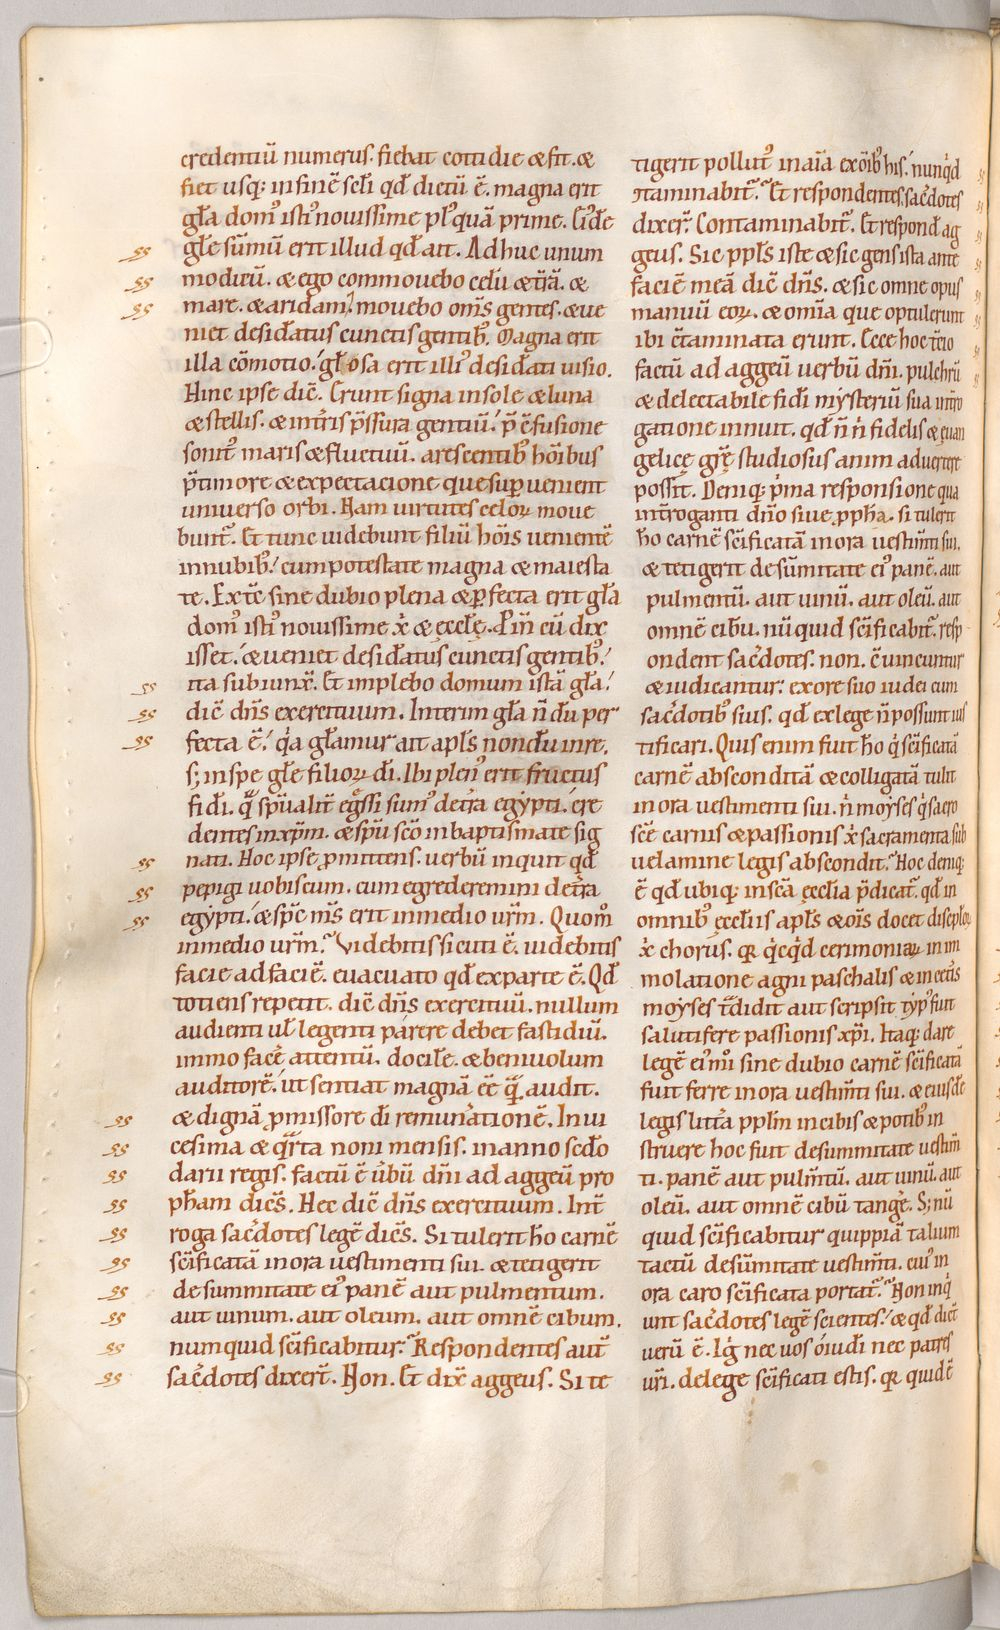 credentiū numerus. fiebat cottidie & fit. &
fiet usq; in finē sc̄li qd̄ dictū ē. magna erit
gl̄a dom᷒ isti᷒ nouissime pl᷒quā prime. Cui᷒dē
gl̄e sūmū erit illud qd̄ ait. Adhuc unum
modicū. & ego commouebo celū & t̄rā. &
mare. & aridam. mouebo om̄s gentes. & ue
niet desid̄atus cunctis gentib᷒. Magna erit
illa cōmotio. gl̄osa erit illi᷒ desid̄ati uisio.
Hinc ipse dic̄. Erunt signa in sole & luna
& stellis. & int̄ris p̄ssura gentiū. p̄ c̄fusione
sonit᷒ maris & fluctuū. arescentib᷒ hōibus
p̄ timore & expectacione que suꝑuenient
uniuerso orbi. Nam uirtutes celoꝝ moue
bunt᷑. Et tunc uidebunt filiū hōis uenientē
in nubib᷒. cum potestate magna & maiesta
te. Ex tc̄ sine dubio plena & ꝑfecta erit gl̄a
dom᷒ isti᷒ nouissime x̄ & ęccl̄ę. P̄in cū dix
isset. & ueniet desid̄atus cunctis gentib᷒.
ita subiunx̄. Et implebo domum istā gl̄a.
dic̄ dn̄s exercituum. Interim gl̄a n̄ dū per
fecta ē. q̇a gl̄amur ait apl̄s nondū in re.
s; in spe gl̄e filioꝝ dī. Ibi plen᷒ erit fructus
fidī. q̄ sp̄ualit̄ eg̊ssi sum᷒ de t̄ra egypti. cre
dentes in xp̄m. & sp̄u sc̄o in baptismate sig
nati. Hoc ipse ꝓmittens. uerbū inquit qd̄
pepigi uobiscum. cum egrederemini de t̄ra
egypti. & sp̄c m̄s erit in medio ur̄m. Quom̊
in medio ur̄m. Videbitis sicuti ē. uidebitis
facie ad faciē. euacuato qd̄ ex parte ē. Qd̄
totiens repetit. dic̄ dn̄s exercituū. nullum
audienti ul̄ legenti parere debet fastidiū.
immo fac̄e attentū. docilē. & beniuolum
auditorē. ut sentiat magnā c̄e q̄ audit.
& dignā ꝓmissore dī remun̄ationē. In ui
cesima & q̄rta noni mensis. in anno sc̄do
darii regis. factū ē ūbū dn̄i ad aggeū pro
ph̄am dicēs. Hec dic̄ dn̄s exercituum. Int̄
roga sac̄dotes legē dicēs. Si tulerit h̄o carnē
sc̄ificatā in ora uestimenti sui. & tetigerit
de summitate ei᷒ panē aut pulmentum.
aut uinum. aut oleum. aut omnē cibum.
numquid sc̄ificabitur. Respondentes aut̄
sac̄dotes dixer̄t. Non. Et dix̄ aggeus. Si te
tigerit pollut᷒ in aīa ex ōib᷒ his. nunq̇d
c̄taminabit᷑. Et respondentes sac̄dotes
dixer̄. Contaminabit᷑. Et respond̄ ag
geus. Sic ppl̄s iste & sic gens ista ante
faciē meā dic̄ dn̄s. & sic omne opus
manuū eoꝝ. & om̄ia que optulerunt
ibi c̄taminata erunt. Ecce hoc t̄cio
factū ad aggeū uerbū dn̄i. pulchrū
& delectabile fidī mysteriū sua int̄ro
gatione innuit. qd̄ n̄ n̊ fidelis & euan
gelicę gr̄ę studiosus anim aduertere
possit. Deniq; p̊ma responsione qua
int̄roganti dn̄o siue ꝓph̄a. si tulerit
h̄o carnē sc̄ificatā in ora uestim̄ti sui.
& tetigerit de sūmitate ei᷒ panē. aut
pulmentū. aut uinū. aut oleū. aut
omnē cibū. nūquid sc̄ificabit᷑. resp
ondent sac̄dotes. non. c̄uincuntur
& iudicantur. ex ore suo iudei cum
sac̄dotib᷒ suis. qd̄ ex lege n̄ possunt ius
tificari. Quis enim fuit h̄o q̇ sc̄ificatā
carnē absconditā & colligatā tulit
in ora uestimenti sui. n̊ moyses q̇ sacro
sc̄e carnis & passionis x̄ sacramenta sub
uelamine legis abscondit. Hoc deniq;
ē qd̄ ubiq; in sc̄a ęcclia p̄dicat᷑. qd̄ in
omnib᷒ ęccl̄iis apl̄s & oīs docet discipl̄oꝝ
x̄ chorus. qꝛ q̇cq̇d cerimoniaꝝ in im
molatione agni paschalis & in cet̄is
moyses t̄didit aut scripsit typ᷒ fuit
salutifere passionis xp̄i. Itaq; dare
legē ei᷒m̊i sine dubio carnē sc̄ificatā
fuit ferre in ora uestim̄ti sui. & eiusdē
legis litt̄a ppl̄m in cibis & potib᷒ in
struere hoc fuit de summitate uestim̄
ti. panē aut pulm̄tū. aut uinū. aut
oleū. aut omnē cibū tang̊e. S; nū
quid sc̄ificabitur quippiā talium
tactū de sūmitate uestim̄ti. cui᷒ in
ora caro sc̄ificata portat᷑. Non inq̇
unt sac̄dotes legē scientes. & qd̄ dicē
uerū ē. Ig̊ nec uos o iudi nec patres
ur̄i. de lege sc̄ificati estis. qꝛ quidē